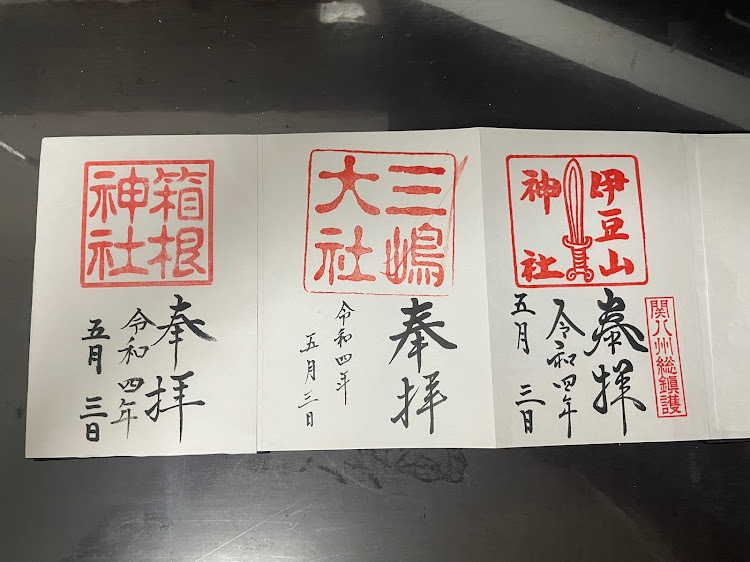 箱根
神社
奉拝
令和四年
五月三日
三嶋
大社
奉拝
令和四年
五月三日
伊豆山
神社
関八州総鎮護
奉拝
令和四年
五月三日